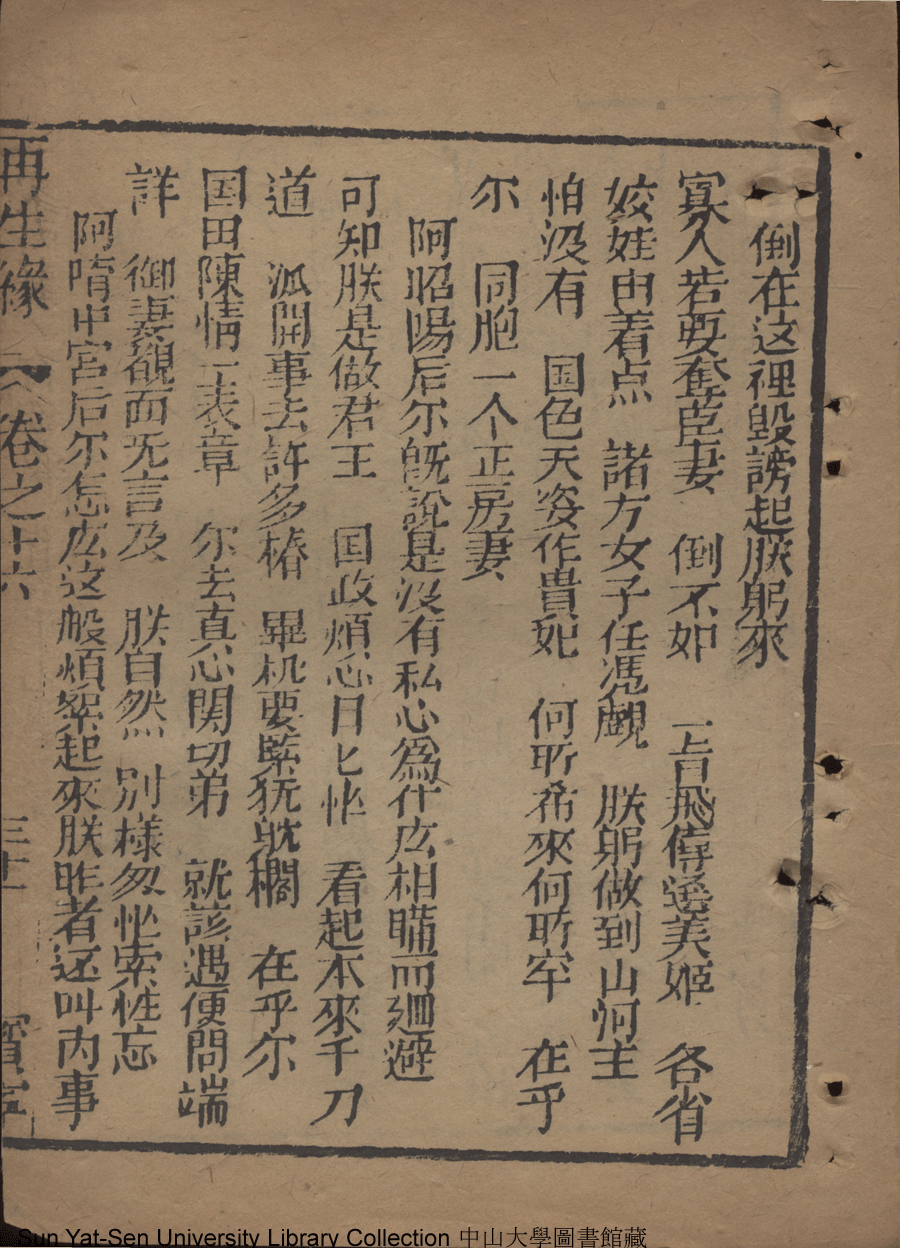 倒在这裡毁謗起朕躬來
寡人若要奪臣妻　倒不如　一旨飛傳選美姬　各省
姣娃由着点　諸方女子任憑觑　朕躬做到山河主
怕没有　国色天姿作貴妃　何所希來何所罕　在乎
尔　同胞一个正房妻
阿昭陽后尔既說是没有私心為什庅相瞞而廻避
可知朕是做君王　国政煩心日匕忙　看起本來千刀
道　派開事去許多樁　畢机要緊犹耽擱　在乎尔
国田陳情一表章　尔去真心関切弟　就該遇便問端
詳　御妻覩面无言及　朕自然　別樣匆忙索性忘
阿唷中宮后尔怎庅这般煩絮起來朕昨者还叫内事
再生緣　卷之十六　三十　寳寧
Sun Yat-Sen University Library Collection 中山大學圖書館藏